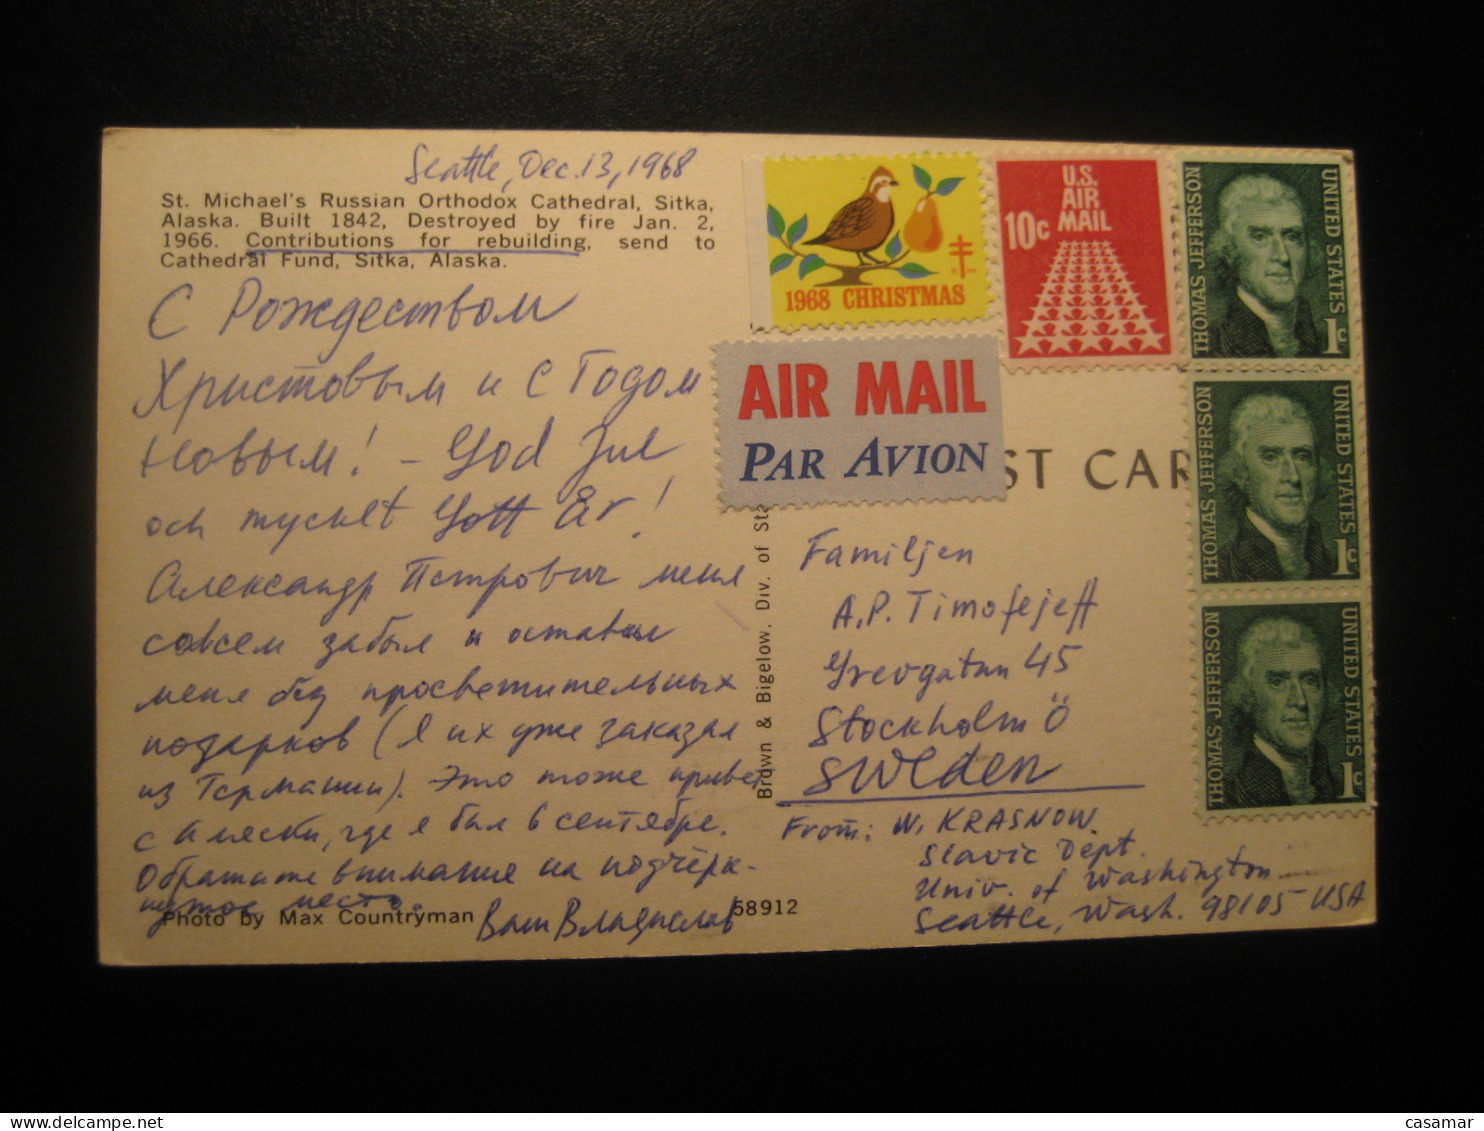 Seattle, Dec. 13, 1968
St. Michael's Russian Orthodox Cathedral, Sitka,
Alaska. Built 1842, Destroyed by fire Jan. 2,
1966. Contributions for rebuilding, send to
Cathedral Fund, Sitka, Alaska.
С Рождеством
Христовым и с Годом
Новым! – God Jul
och mycket Gott År!
Александр Петрович меня
совсем забыл и оставил
меня без просветительных
подарков (я их уже заказал
из Германии). Это тоже привет
с Аляски, где я был в сентябре.
Обратите внимание на подчёрк-
нутое место.
Ваш Владислав
Photo by Max Countryman
58912
Brown & Bigelow. Div. of Sta
1968 CHRISTMAS
U.S.
AIR
MAIL
10c
THOMAS JEFFERSON
UNITED STATES
1c
AIR MAIL
PAR AVION
ST CAR
THOMAS JEFFERSON
UNITED STATES
1c
THOMAS JEFFERSON
UNITED STATES
1c
Familjen
A.P. Timofejeff
Grevgatan 45
Stockholm Ö
Sweden
From: W. KRASNOW
Slavic Dept.
Univ. of Washington
Seattle, Wash. 98105 USA
casamar
www.delcampe.net